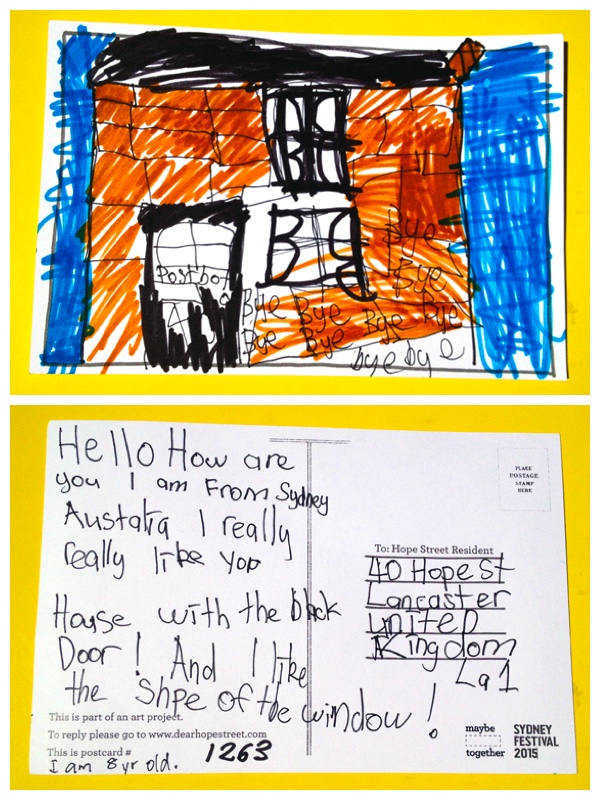 Postbot
Bye
Bye
Bye Bye Bye Bye
Bye Bye Bye Bye
bye bye
Hello How are
you I am From Sydney
Austalia I really
really like you
House with the black
Door! And I like
the Shpe of the window!
This is part of an art project.
To reply please go to www.dearhopestreet.com
This is postcard # 1263
I am 8 yr old.
PLACE
POSTAGE
STAMP
HERE
To: Hope Street Resident
40 Hope St
Lancaster
United
Kingdom
La1
maybe
together
SYDNEY
FESTIVAL
2015